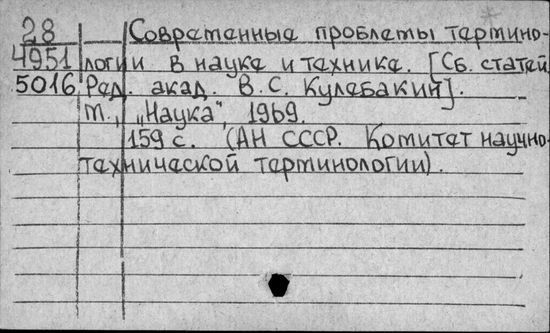 28 Современные проблемы термино-
4951 логии в науке и технике. [Сб. статей
5016 Ред. акад. В. С. Кулебакин].
М., „Наука", 1969.
159 с. (АН СССР. Комитет научно-
технической терминологии).